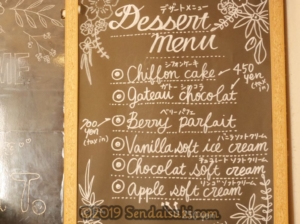 デザートメニュー
Dessert
menu
シフォンケーキ
Chiffon cake
450
yen
(tax in)
ガトーショコラ
Gateau chocolat
ベリーパフェ
700
yen
(tax in)
Berry parfait
バニラソフトクリーム
Vanilla soft ice cream
チョコレートソフトクリーム
Chocolat soft cream
リンゴソフトクリーム
Apple soft cream
©2019 Sendai